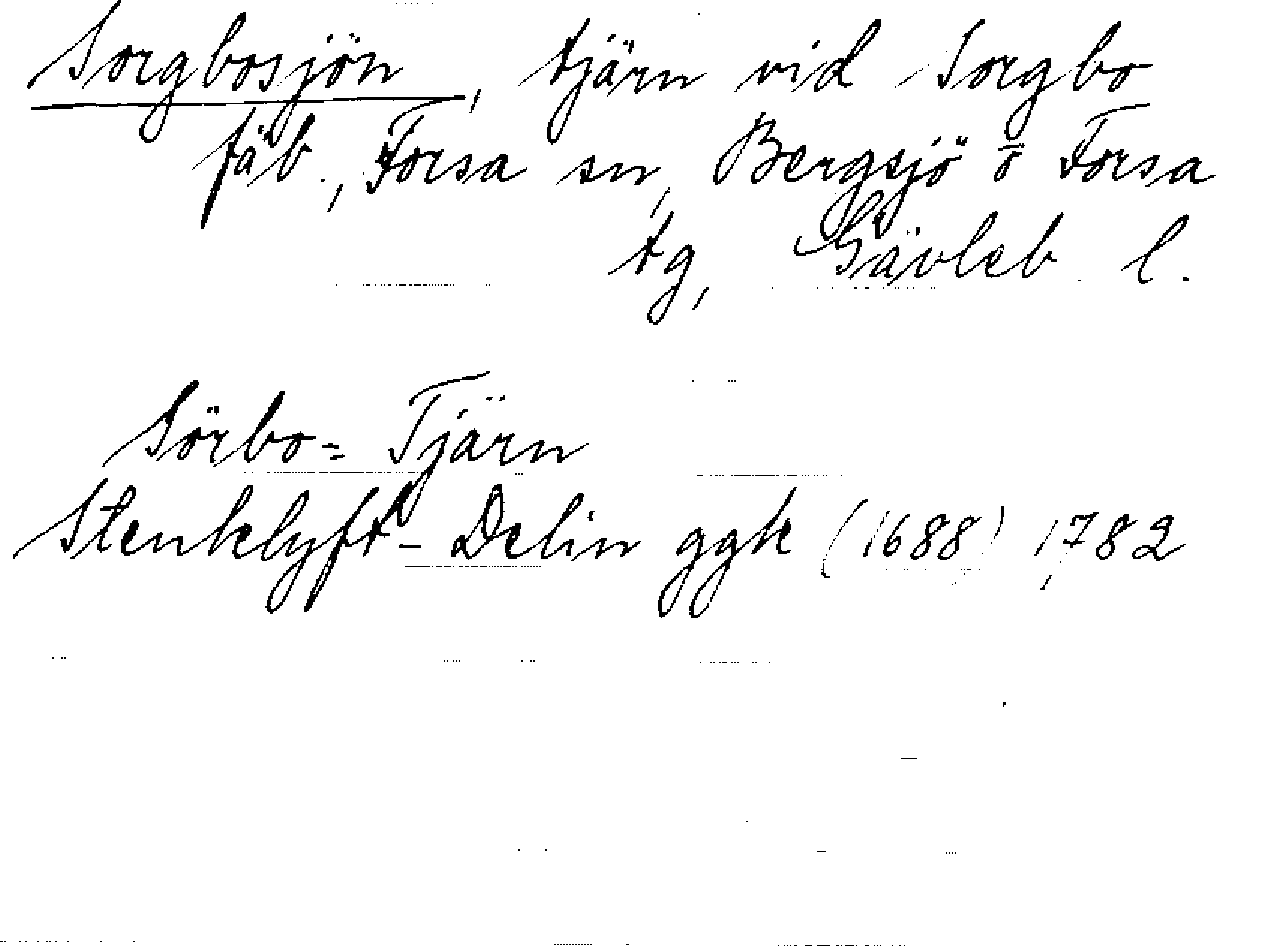 Sorgbosjön, tjärn vid Sorgbo
fäb., Forsa sn, Bergsjö o Forsa
tg, Gävleb. l.
Sörbo= Tjärn
Stenklyft- Delin ggk (1688) 1782